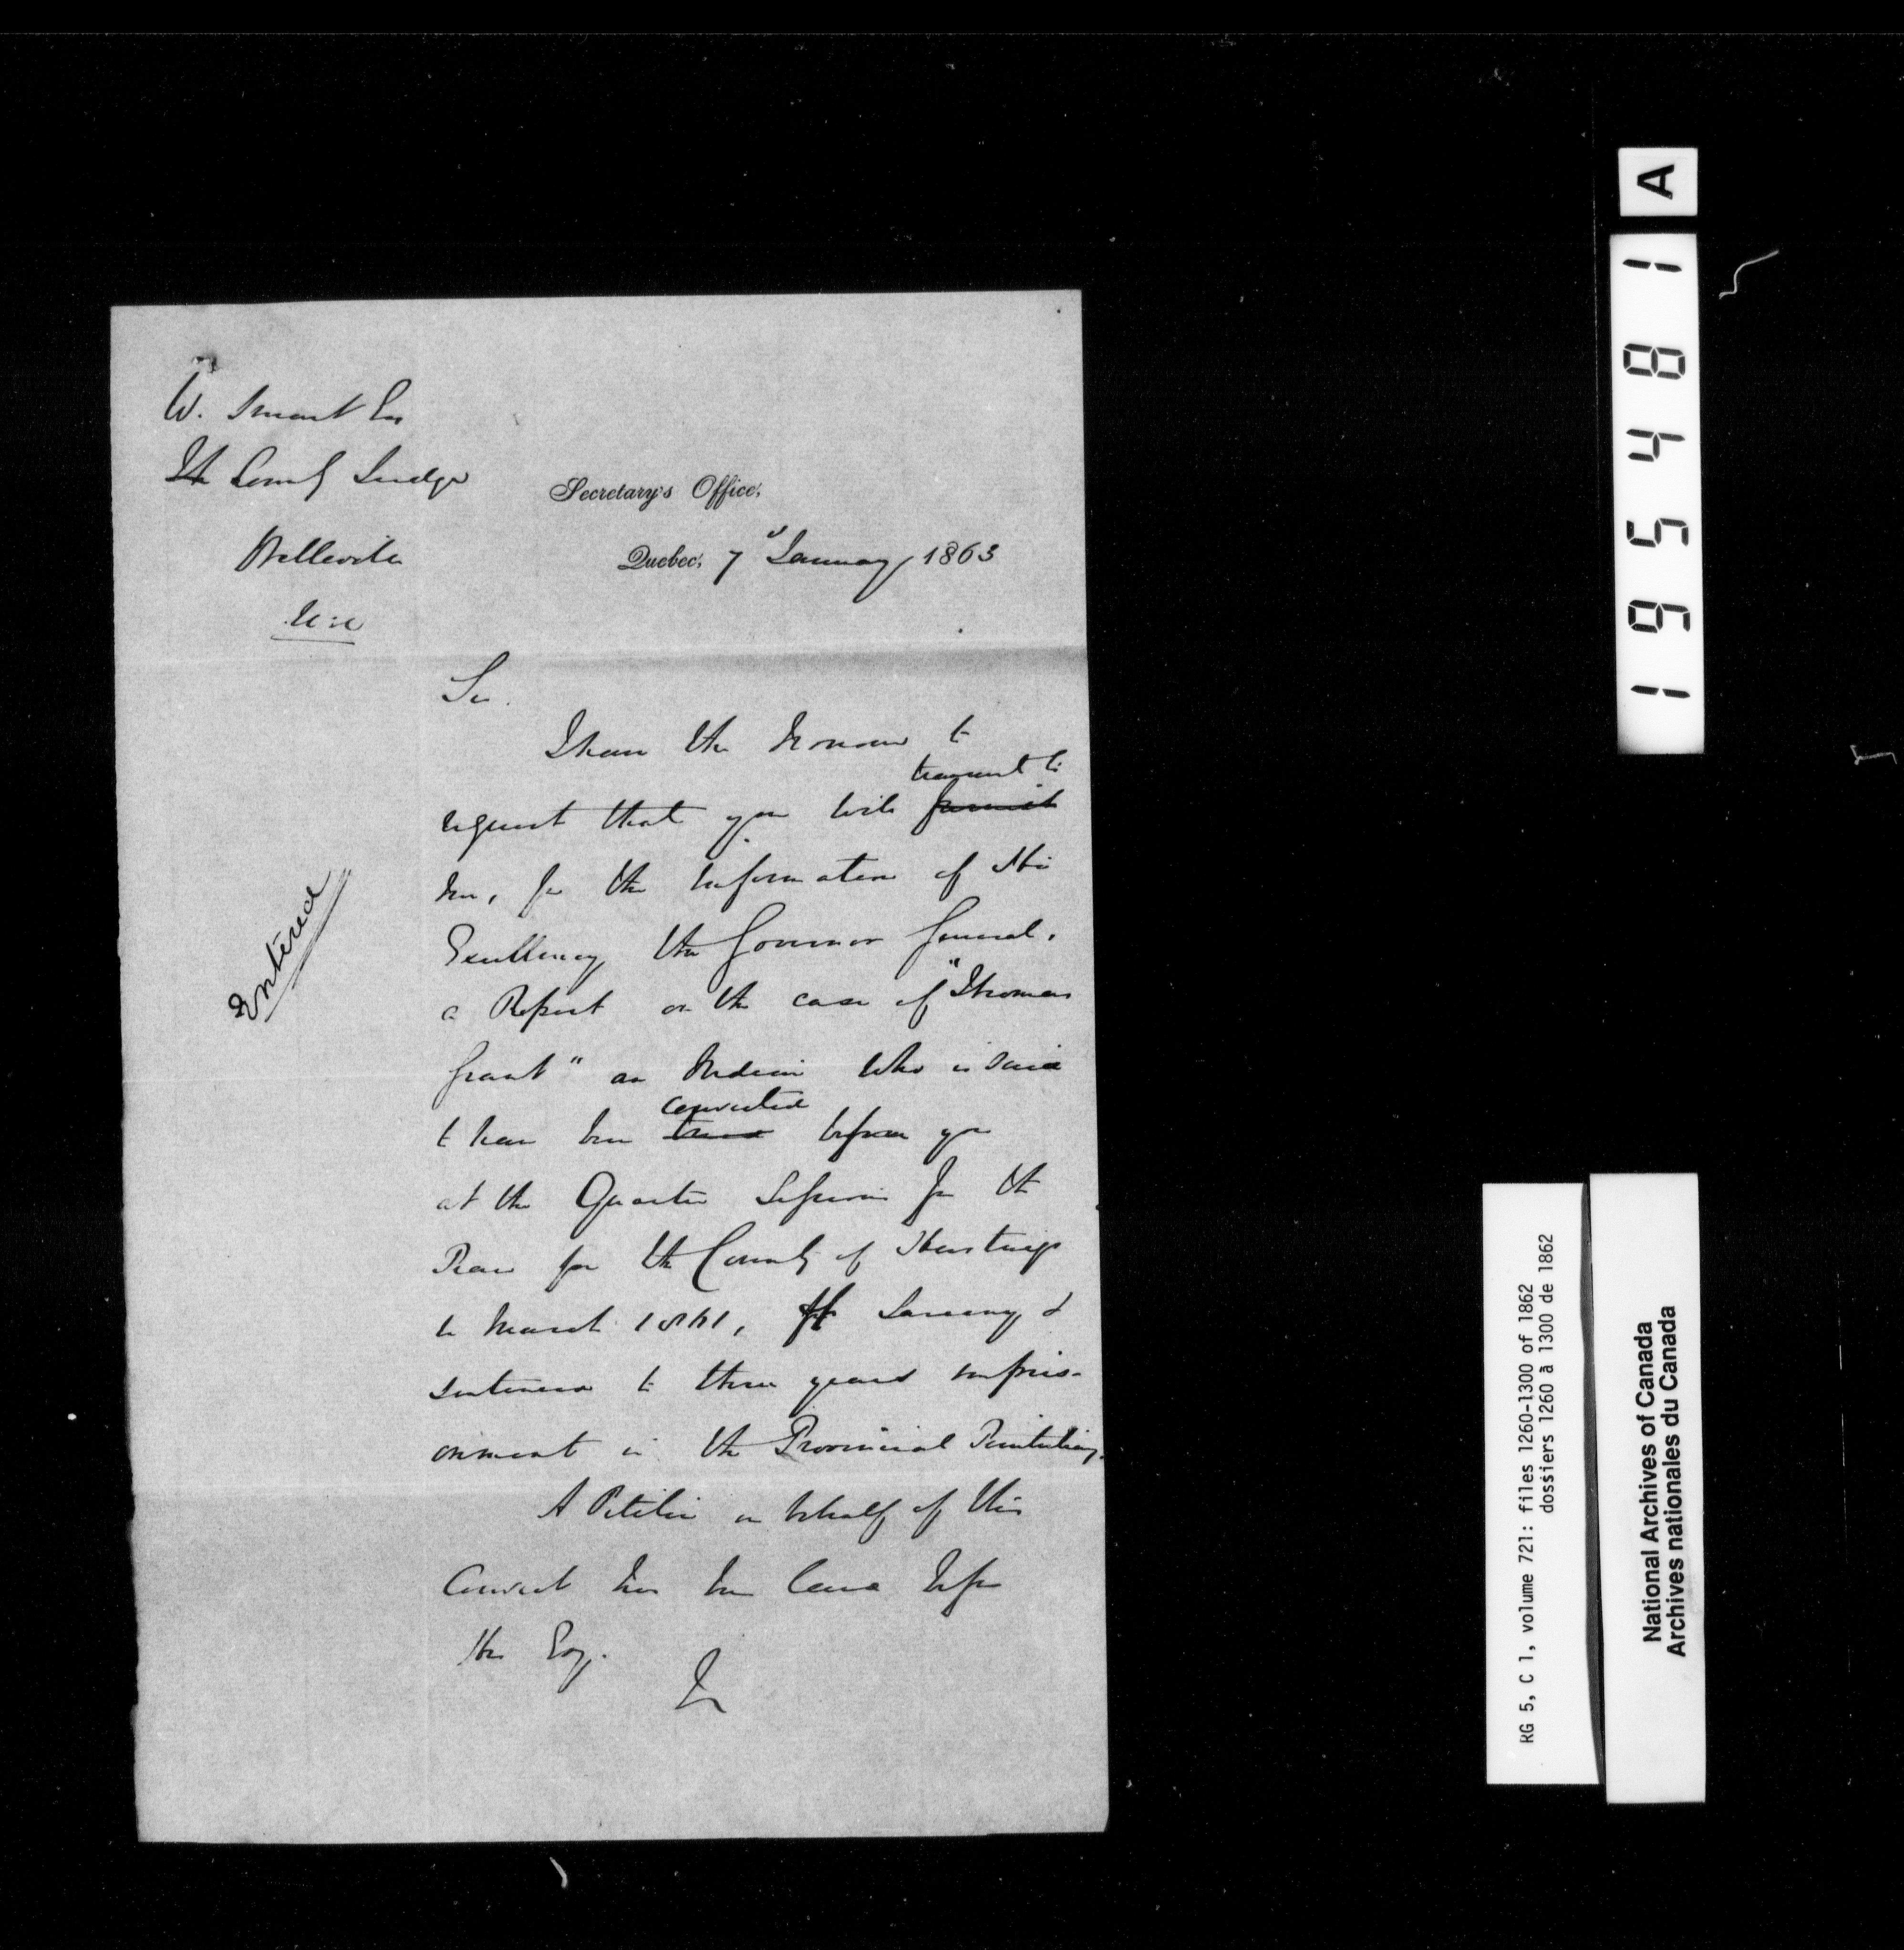 W. Smart Esq
The County Judge
Belleville
U.C.
Secretary's Office,
Quebec, 7 January 1863
Sir.
I have the honour to
transmit to
request that you will furnish
me, for the information of His
Excellency the Governor General,
a Report on the case of "Thomas
Grant" an Indian who is said
convicted
to have been tried before you
at the Quarter Sessions for the
Peace for the County of Hastings
in March 1861, of Larceny &
sentenced to three years impris-
onment in the Provincial Penitentiary.
A Petition on behalf of this
Convict has been laid before
His Exy.
Entered
A
195481
RG 5, C 1, volume 721: files 1260-1300 of 1862
dossiers 1260 à 1300 de 1862
National Archives of Canada
Archives nationales du Canada